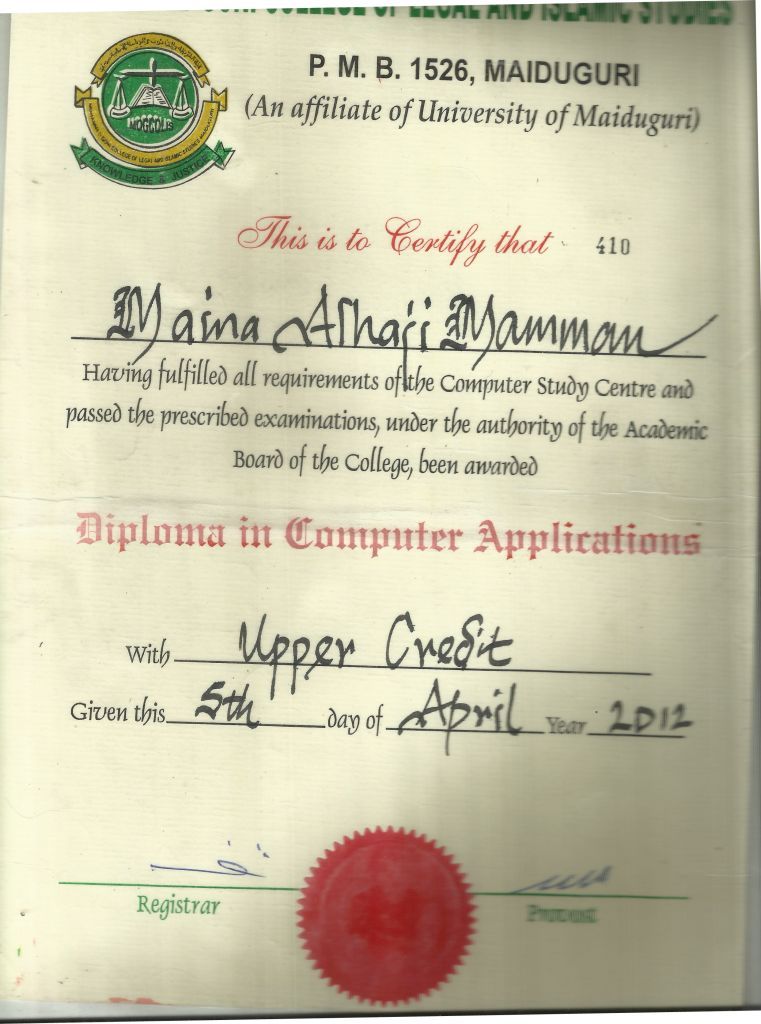 COLLEGE OF LEGAL AND ISLAMIC STUDIES
P. M. B. 1526, MAIDUGURI
(An affiliate of University of Maiduguri)
MOGCOLIS
COLLEGE OF LEGAL AND ISLAMIC STUDIES
KNOWLEDGE & JUSTICE
This is to Certify that 410
Maina Alhaji Mamman
Having fulfilled all requirements of the Computer Study Centre and
passed the prescribed examinations, under the authority of the Academic
Board of the College, been awarded
Diploma in Computer Applications
With Upper Credit
Given this 5th day of April Year 2012
Registrar
Provost